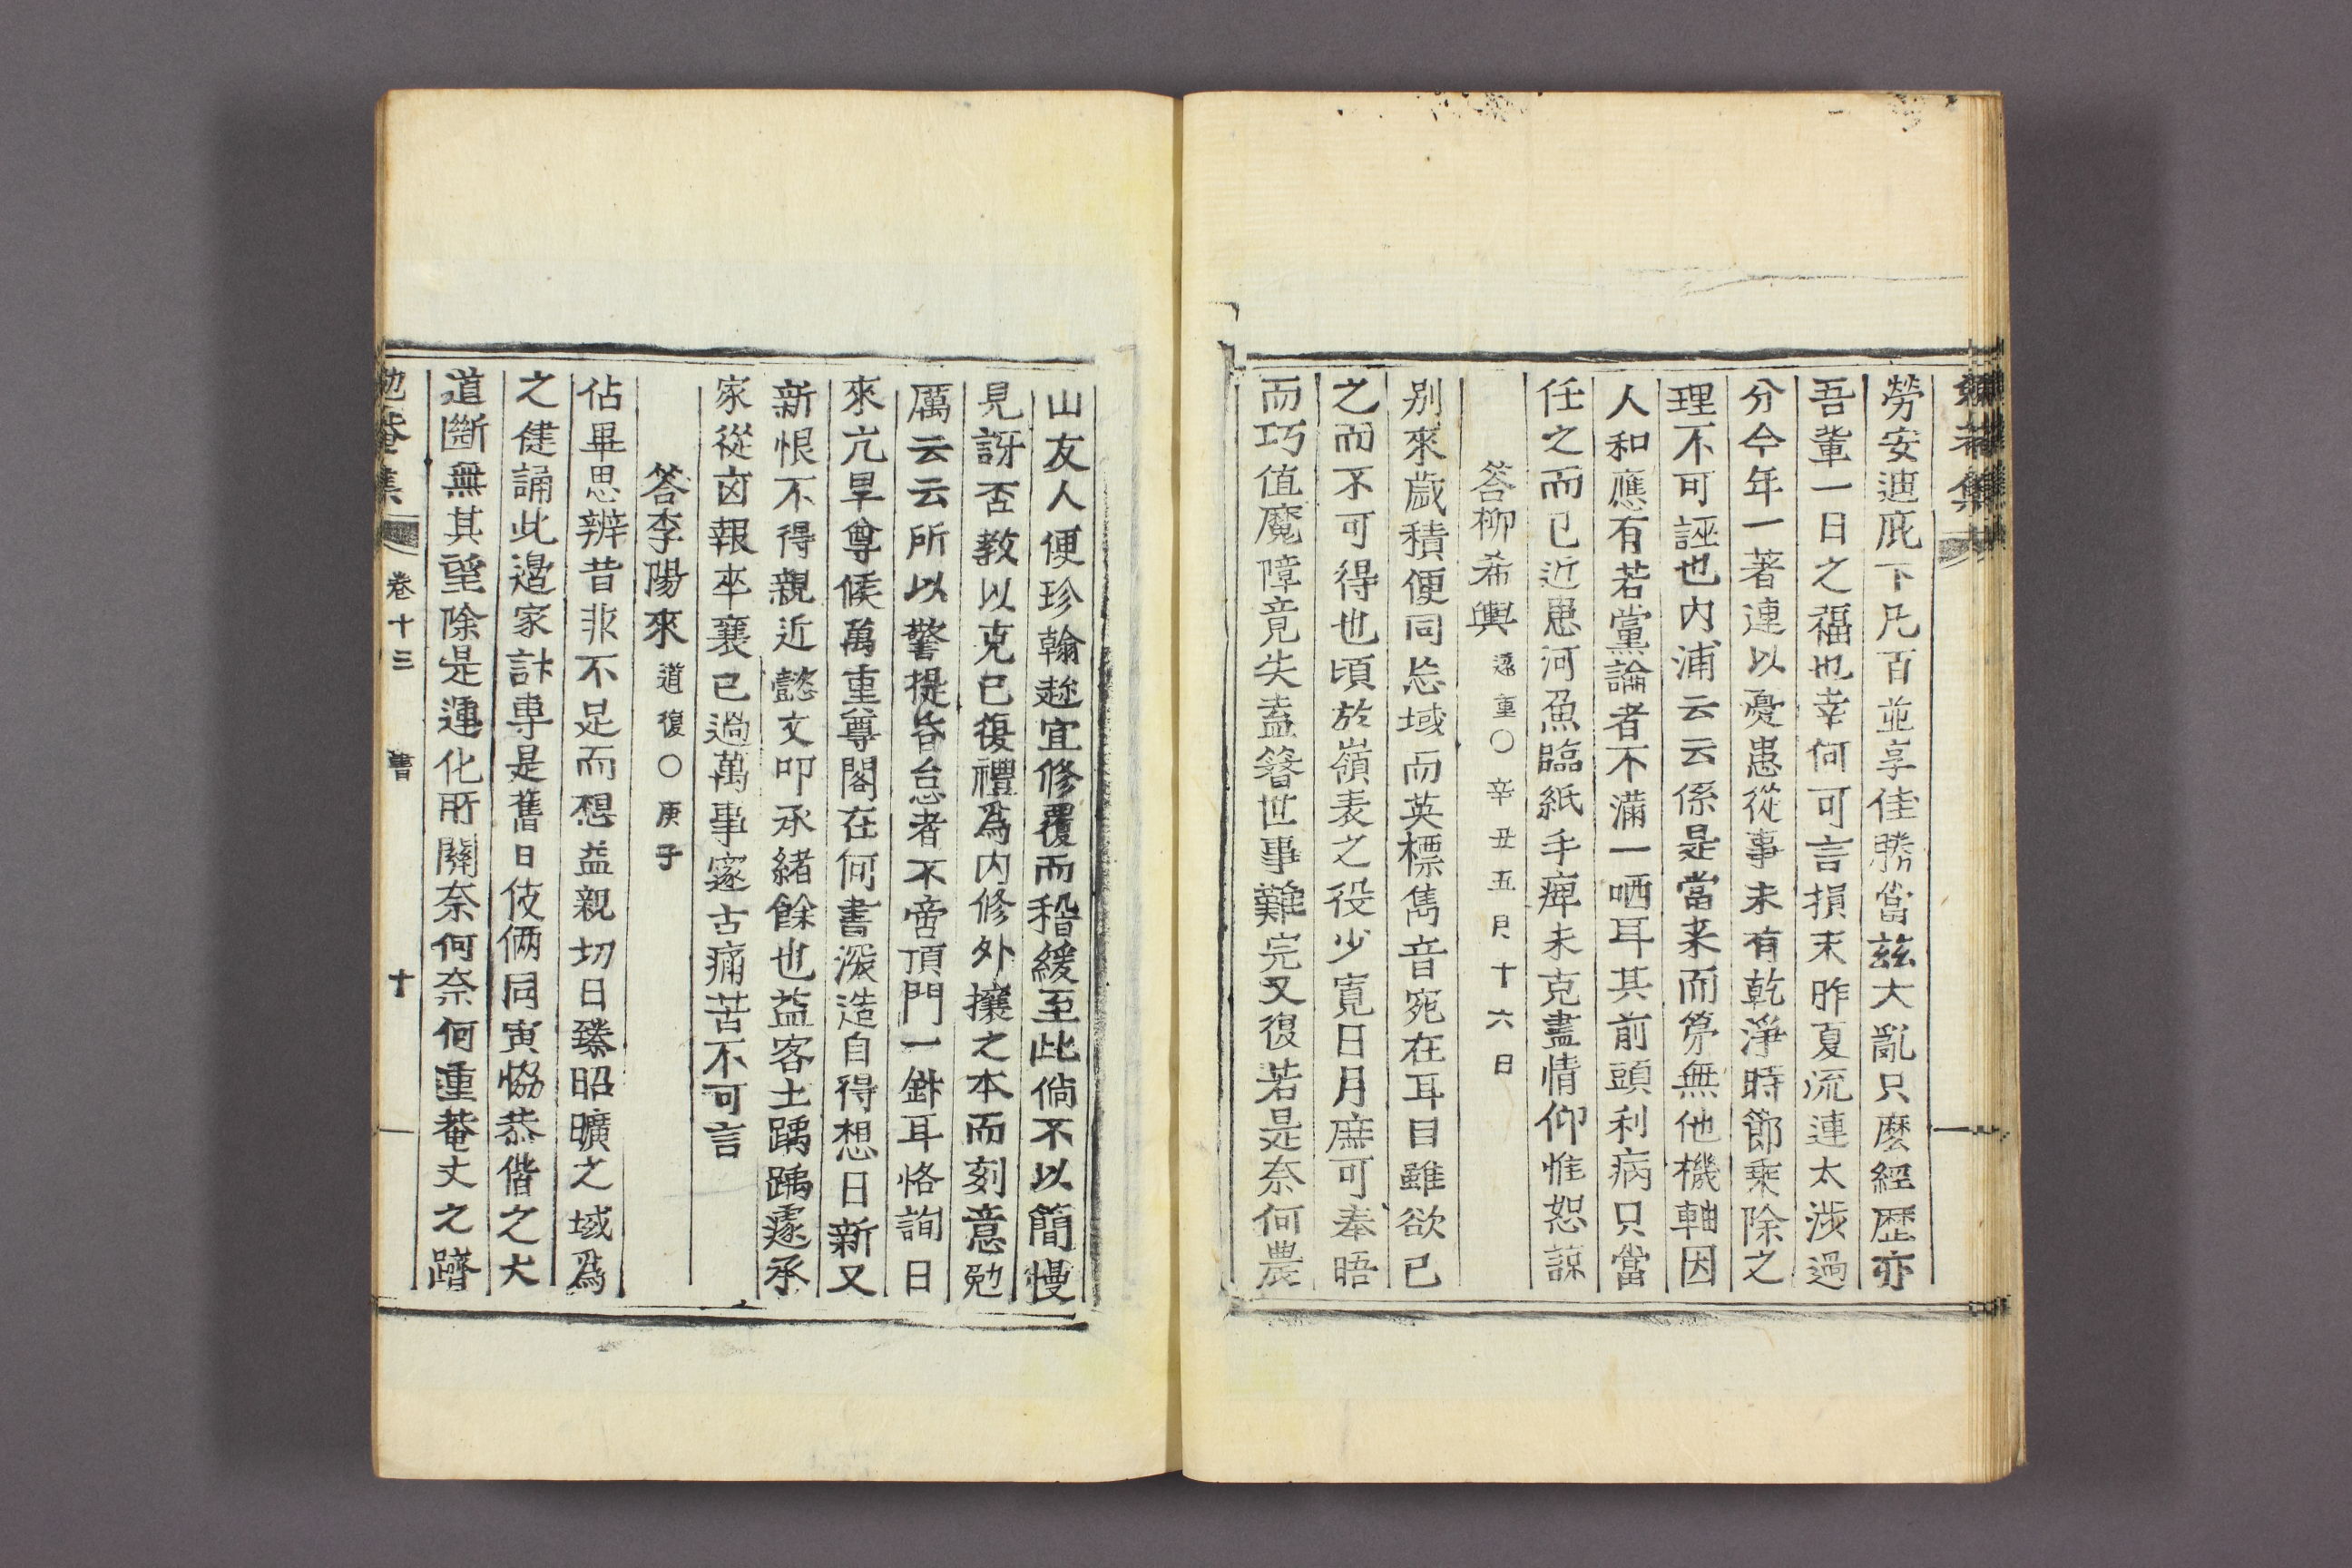 勉菴集
勞安迪庇下凡百並享佳勝當玆大亂只麽經歷亦
吾輩一日之福也幸何可言損末昨夏流連太涉過
分今年一著連以憂患從事未有乾淨時節乘除之
理不可誣也内浦云云係是當来而筭無他機軸因
人和應有若黨論者不滿一哂耳其前頭利病只當
任之而已近患河魚臨紙手痺未克盡情仰惟恕諒
答柳希輿 遠重○辛丑五月十六日
别來歲積便同忘域而英標雋音宛在耳目雖欲已
之而不可得也頃於嶺表之役少寬日月庶可奉晤
而巧值魔障竟失盍簪世事難完又復若是奈何農
山友人便珍翰趁宜修覆而稽緩至此倘不以簡慢
見訝否教以克已復禮爲内修外攘之本而刻意勉
厲云云所以警提昏怠者不啻頂門一針耳恪詢日
來亢旱尊候萬重尊閣在何書深造自得想日新又
新恨不得親近懿文叩承緖餘也益客土踽踽遽承
家從凶報卒襄已過萬事寥古痛苦不可言
答李陽來 道復○庚子
佔畢思辨昔非不足而想益親切日臻昭曠之域爲
之健誦此邊家計專是舊日伎倆同寅恊恭偕之大
道斷無其望除是運化所關奈何奈何重菴丈之躋
勉菴集 卷十三 書 十